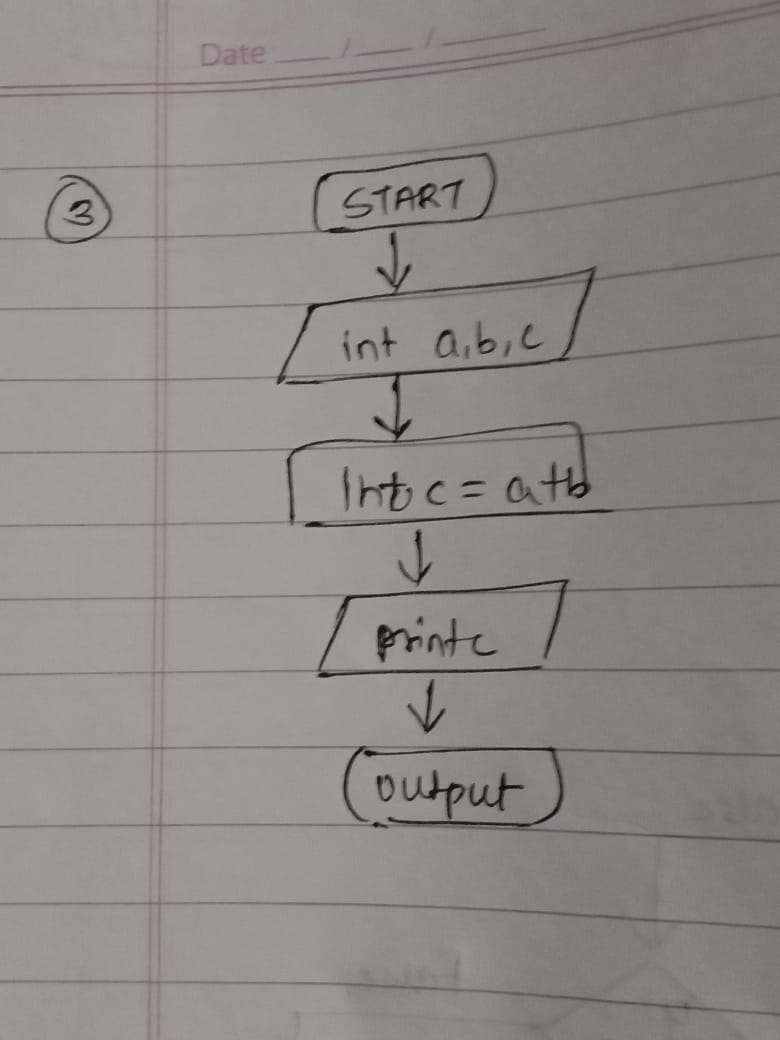 Date __/__/____
3
START
int a,b,c
Int c = a+b
print c
output